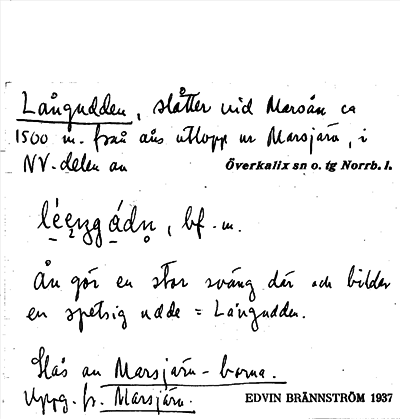 Långudden, slåtter vid Marsån ca
1500 m. från åns utlopp ur Marsjärv, i
NV-delen av Överkalix sn o. tg Norrb. l.
bf. m.
Ån gör en stor sväng där och bildar
en spetsig udde = Långudden.
Slås av Marsjärv-borna.
Uppg. fr. Marsjärv.
EDVIN BRÄNNSTRÖM 1937